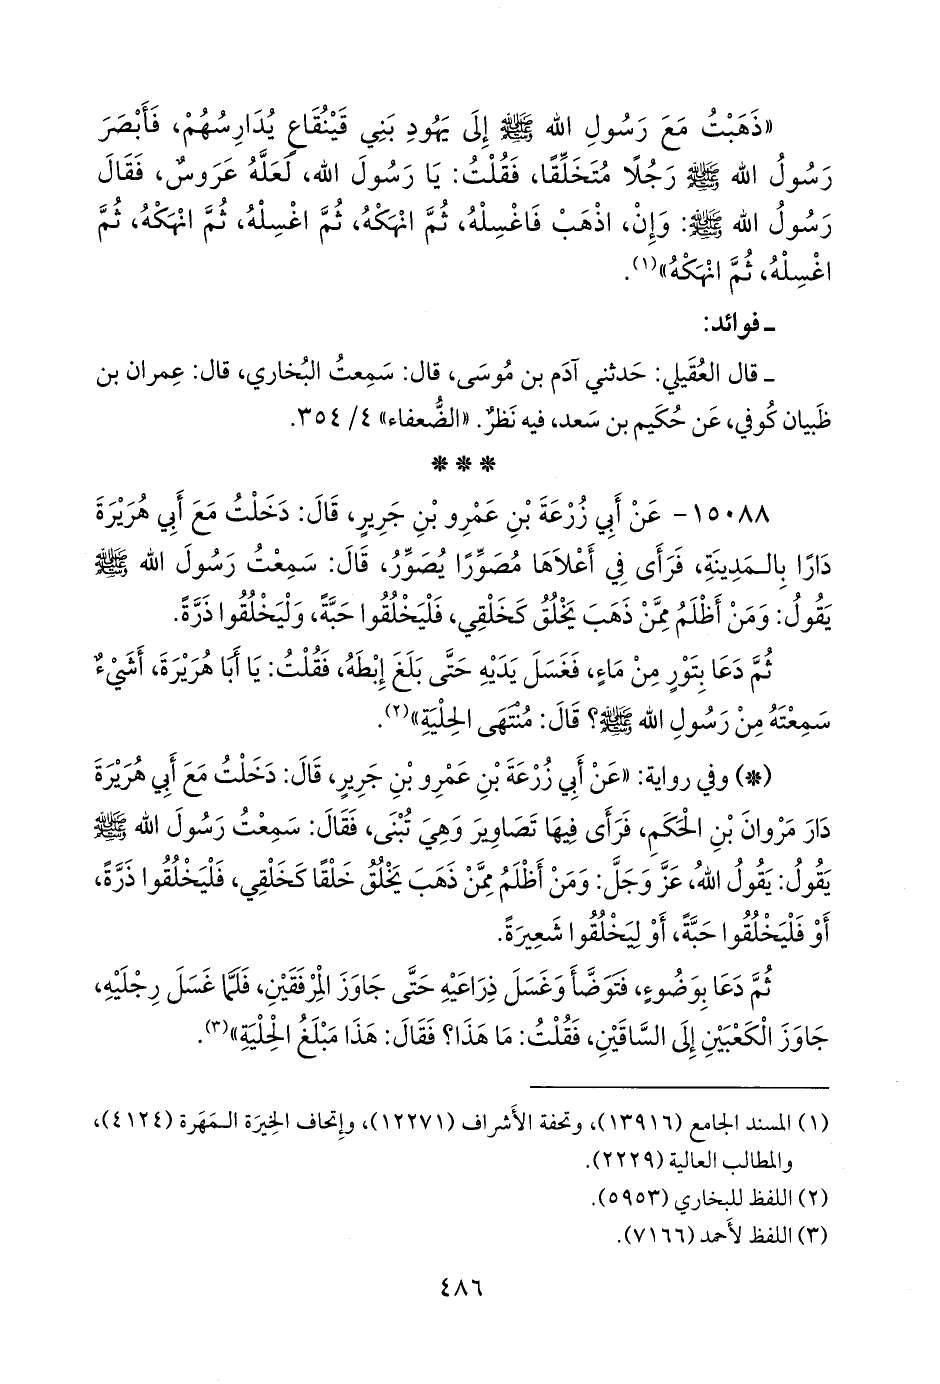 «ذَهَبْتُ مَعَ رَسُولِ الله ﷺ إِلَى يَهُودِ بَنِي قَيْنُقَاعٍ يُدَارِسُهُمْ، فَأَبْصَرَ
رَسُولُ الله ﷺ رَجُلًا مُتَخَلِّقًا، فَقُلْتُ: يَا رَسُولَ الله، لَعَلَّهُ عَرُوسٌ، فَقَالَ
رَسُولُ الله ﷺ: وَإِنْ، اذْهَبْ فَاغْسِلْهُ، ثُمَّ انْهَكْهُ، ثُمَّ اغْسِلْهُ، ثُمَّ انْهَكْهُ، ثُمَّ
اغْسِلْهُ، ثُمَّ انْهَكْهُ»(١).
ـ فوائد:
ـ قال العُقَيلي: حَدثني آدَم بن مُوسَى، قال: سَمِعتُ البُخاري، قال: عِمران بن
ظَبيان كُوفي، عَن حُكَيم بن سَعد، فيه نَظرٌ. «الضُّعفاء» ٤/ ٣٥٤.
* * *
١٥٠٨٨- عَنْ أَبِي زُرْعَةَ بْنِ عَمْرِو بْنِ جَرِيرٍ، قَالَ: دَخَلْتُ مَعَ أَبِي هُرَيْرَةَ
دَارًا بِالْمَدِينَةِ، فَرَأَى فِي أَعْلَاهَا مُصَوِّرًا يُصَوِّرُ، قَالَ: سَمِعْتُ رَسُولَ الله ﷺ
يَقُولُ: وَمَنْ أَظْلَمُ مِمَّنْ ذَهَبَ يَخْلُقُ كَخَلْقِي، فَلْيَخْلُقُوا حَبَّةً، وَلْيَخْلُقُوا ذَرَّةً.
ثُمَّ دَعَا بِتَوْرٍ مِنْ مَاءٍ، فَغَسَلَ يَدَيْهِ حَتَّى بَلَغَ إِبْطَهُ، فَقُلْتُ: يَا أَبَا هُرَيْرَةَ، أَشَيْءٌ
سَمِعْتَهُ مِنْ رَسُولِ الله ﷺ؟ قَالَ: مُنْتَهَى الحِلْيَةِ»(٢).
(*) وفي رواية: «عَنْ أَبِي زُرْعَةَ بْنِ عَمْرِو بْنِ جَرِيرٍ، قَالَ: دَخَلْتُ مَعَ أَبِي هُرَيْرَةَ
دَارَ مَرْوَانَ بْنِ الحَكَمِ، فَرَأَى فِيهَا تَصَاوِيرَ وَهِيَ تُبْنَى، فَقَالَ: سَمِعْتُ رَسُولَ الله ﷺ
يَقُولُ: يَقُولُ اللهُ، عَزَّ وَجَلَّ: وَمَنْ أَظْلَمُ مِمَّنْ ذَهَبَ يَخْلُقُ خَلْقًا كَخَلْقِي، فَلْيَخْلُقُوا ذَرَّةً،
أَوْ فَلْيَخْلُقُوا حَبَّةً، أَوْ لِيَخْلُقُوا شَعِيرَةً.
ثُمَّ دَعَا بِوَضُوءٍ، فَتَوَضَّأَ وَغَسَلَ ذِرَاعَيْهِ حَتَّى جَاوَزَ المِرْفَقَيْنِ، فَلَمَّا غَسَلَ رِجْلَيْهِ،
جَاوَزَ الْكَعْبَيْنِ إِلَى السَّاقَيْنِ، فَقُلْتُ: مَا هَذَا؟ فَقَالَ: هَذَا مَبْلَغُ الْحِلْيَةِ»(٣).
(١) المسند الجامع (١٣٩١٦)، وتحفة الأَشراف (١٢٢٧١)، وإتحاف الخِيرَة المَهَرة (٤١٢٤)،
والمطالب العالية (٢٢٢٩).
(٢) اللفظ للبخاري (٥٩٥٣).
(٣) اللفظ لأَحمد (٧١٦٦).
٤٨٦